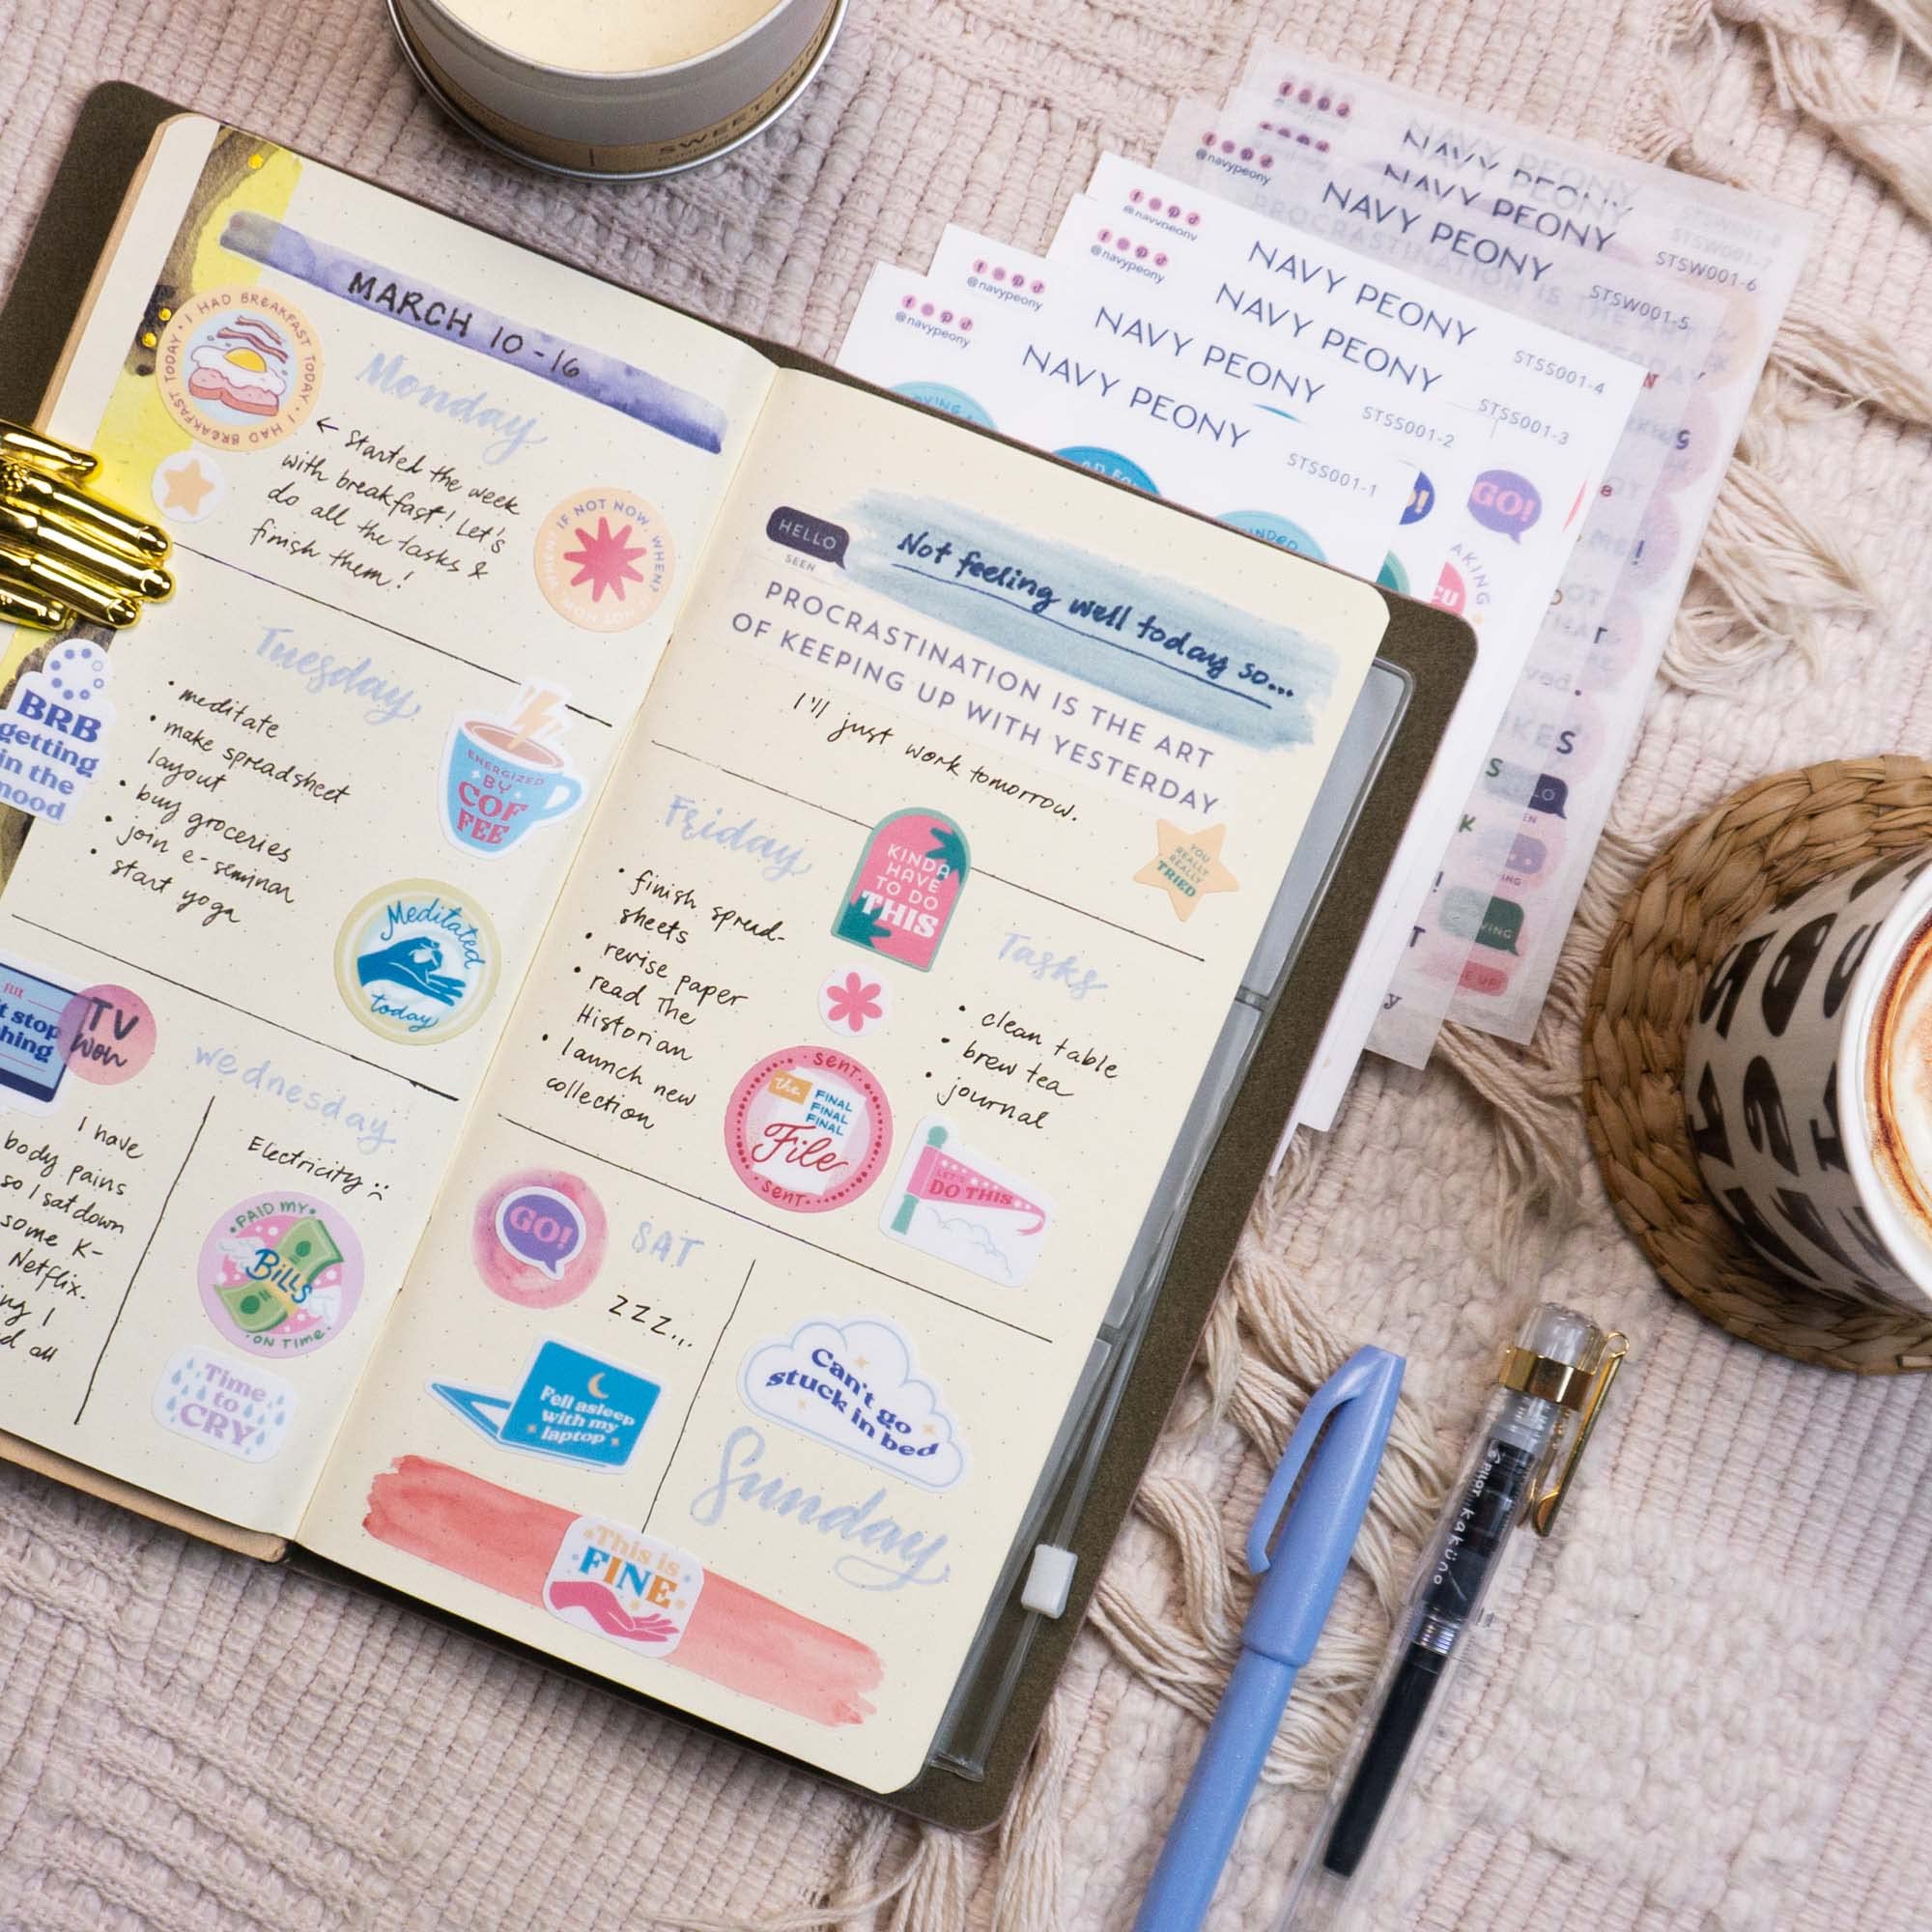 MARCH 10-16
I HAD BREAKFAST TODAY • I HAD BREAKFAST TODAY •
Monday
← Started the week
with breakfast! Let's
do all the tasks &
finish them!
IF NOT NOW, WHEN?
IF NOT NOW, WHEN?
Tuesday
• meditate
• make spreadsheet
layout
• buy groceries
• join e-seminar
• start yoga
BRB
getting
in the
mood
ENERGIZED
BY
COF
FEE
Meditated
today
stop
TV
Won
Wednesday
I have
body pains
so I sat down
some K-
Netflix.
I
all
Electricity :(
PAID MY
BILLS
ON TIME
Time
to
CRY
HELLO
SEEN
Not feeling well today so...
PROCRASTINATION IS THE ART
OF KEEPING UP WITH YESTERDAY
I'll just work tomorrow.
YOU
REALLY
REALLY
TRIED
Friday
• finish spread-
sheets
• revise paper
• read The
Historian
• launch new
collection
KINDA
HAVE
TO DO
THIS
Tasks
• clean table
• brew tea
• journal
SENT
the
FINAL
FINAL
FINAL
File
SENT
LET'S
DO THIS
GO!
SAT
ZZZ...
Fell asleep
with my
laptop
Can't go
stuck in bed
Sunday
This is
FINE
SWEET
@navypeony
NAVY PEONY
STSS001-1
@navypeony
NAVY PEONY
STSS001-2
@navypeony
NAVY PEONY
STSS001-3
@navypeony
NAVY PEONY
STSS001-4
@navypeony
NAVY PEONY
STSW001-5
NAVY PEONY
STSW001-6
NAVY PEONY
GO!
PILOT kaküno